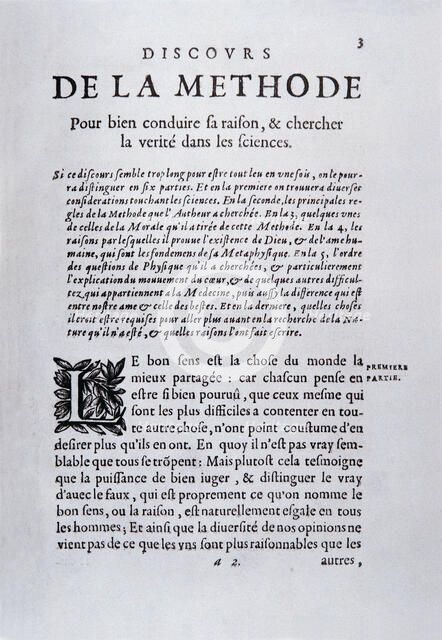 3
DISCOVRS
DE LA METHODE
Pour bien conduire ſa raiſon, & chercher
la verité dans les ſciences.
Si ce diſcours ſemble trop long pour eſtre tout leu en vne fois, on le pour-
ra diſtinguer en ſix parties. Et en la premiere on trouuera diuerſes
conſiderations touchant les ſciences. En la ſeconde, les principales re-
gles de la Methode que l'Autheur a cherchée. En la 3, quelques vnes
de celles de la Morale qu'il a tirée de cete Methode. En la 4, les
raiſons par leſquelles il prouue l'exiſtence de Dieu, & de l'ame hu-
maine, qui ſont les fondemens de ſa Metaphyſique. En la 5, l'ordre
des queſtions de Phyſique qu'il a cherchées, & particulierement
l'explication du mouuement du cœur, & de quelques autres difficul-
tez qui appartienent a la Medecine, puis auſſy la difference qui eſt
entre noſtre ame & celle des beſtes. Et en la derniere, quelles choſes
il croit eſtre requiſes pour aller plus auant en la recherche de la Na-
ture qu'il n'a eſté, & quelles raiſons l'ont fait eſcrire.
LE bon ſens eſt la choſe du monde la
mieux partagée: car chaſcun penſe en
eſtre ſi bien pouruû, que ceux meſme qui
ſont les plus difficiles a contenter en tou-
te autre choſe, n'ont point couſtume d'en
deſirer plus qu'ils en ont. En quoy il n'eſt pas vray ſem-
blable que tous ſe trõpent: Mais plutoſt cela teſmoigne
que la puiſſance de bien iuger, & diſtinguer le vray
d'auec le faux, qui eſt proprement ce qu'on nomme le
bon ſens, ou la raiſon, eſt naturellement eſgale en tous
les hommes; Et ainſi que la diuerſité de nos opinions ne
vient pas de ce que les vns ſont plus raiſonnables que les
PREMIERE
PARTIE.
a 2.
autres,